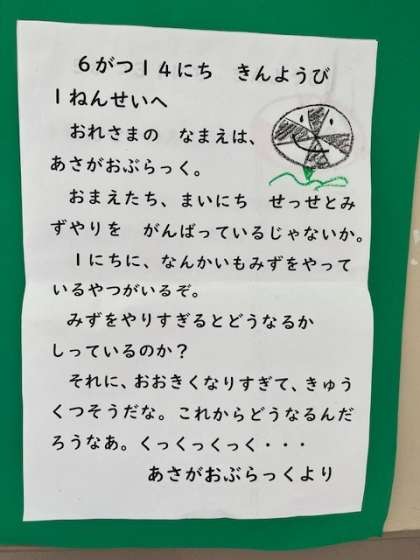 ６がつ１４にち　きんようび
１ねんせいへ
　おれさまの　なまえは、
あさがおぶらっく。
　おまえたち、まいにち　せっせとみ
ずやりを　がんばっているじゃないか。
　１にちに、なんかいもみずをやって
いるやつがいるぞ。
　みずをやりすぎるとどうなるか
しっているのか？
　それに、おおきくなりすぎて、きゅう
くつそうだな。これからどうなるんだ
ろうなあ。くっくっくっく・・・
あさがおぶらっくより